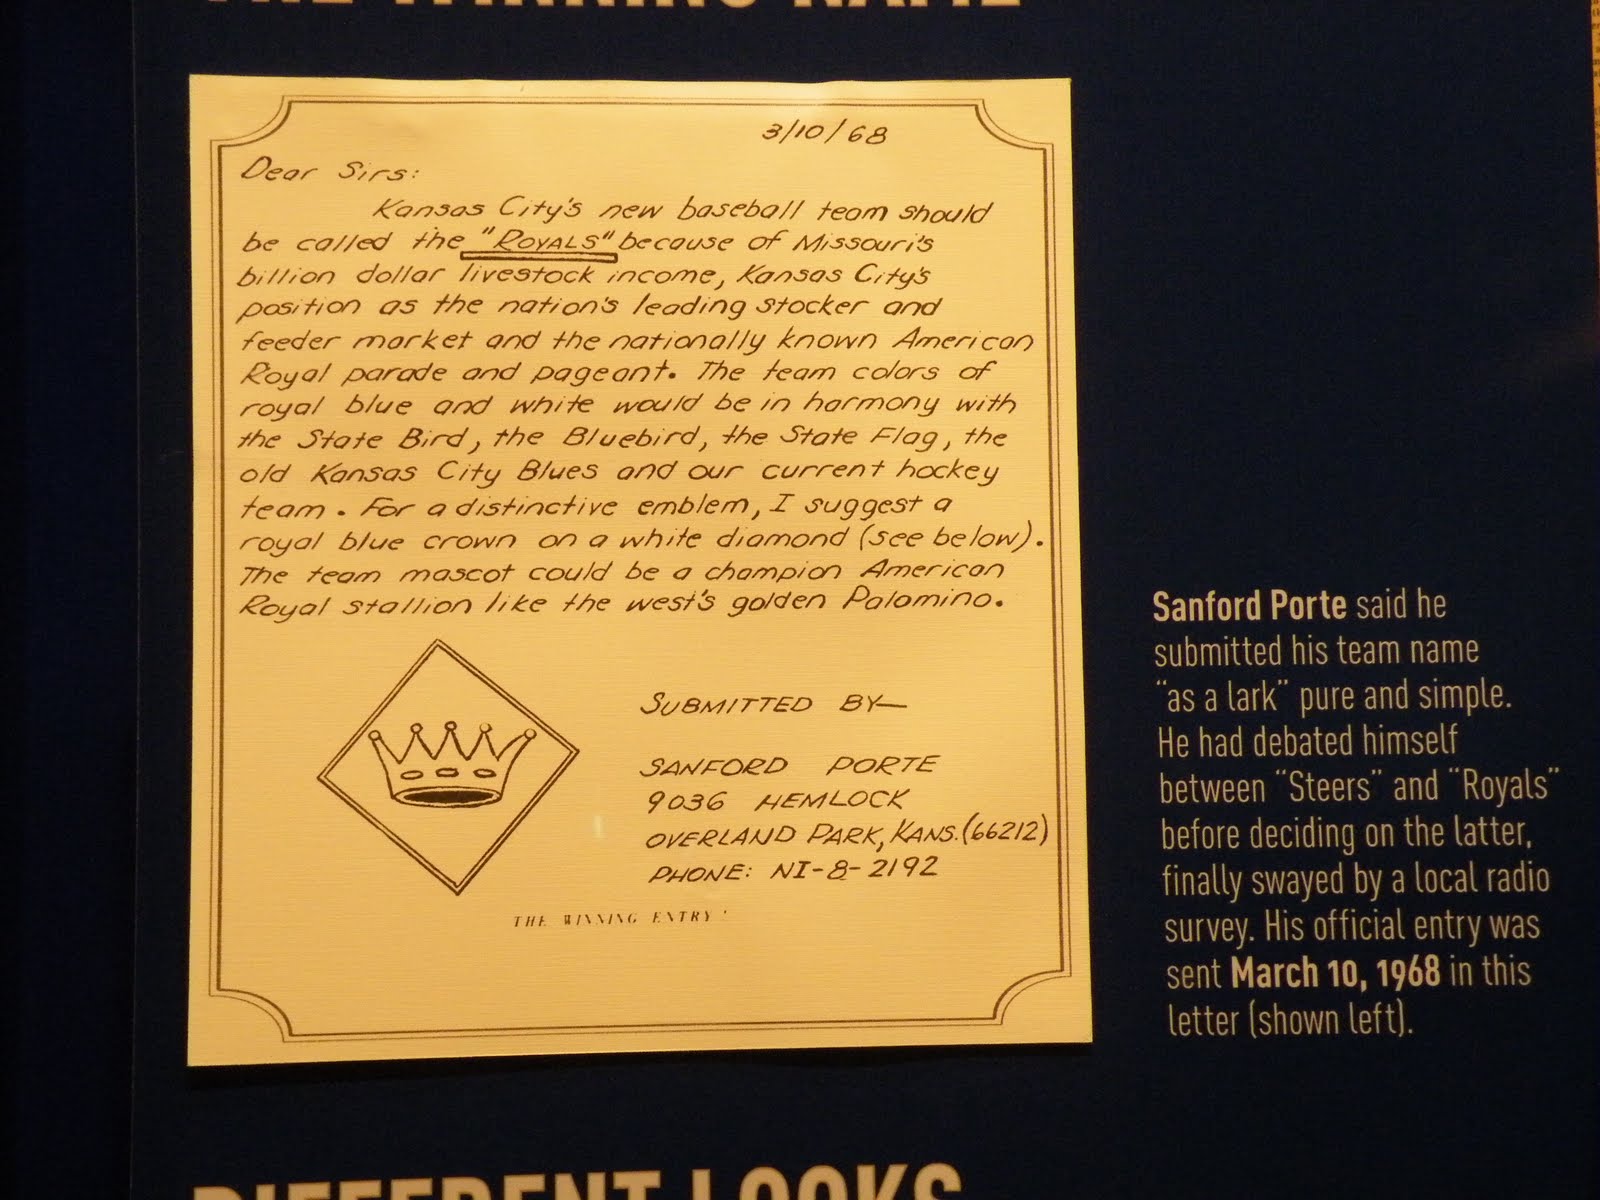 THE WINNING NAME
3/10/68
Dear Sirs:
Kansas City's new baseball team should
be called the "ROYALS" because of Missouri's
billion dollar livestock income, Kansas City's
position as the nation's leading stocker and
feeder market and the nationally known American
Royal parade and pageant. The team colors of
royal blue and white would be in harmony with
the State Bird, the Bluebird, the State Flag, the
old Kansas City Blues and our current hockey
team. For a distinctive emblem, I suggest a
royal blue crown on a white diamond (see below).
The team mascot could be a champion American
Royal stallion like the west's golden Palomino.
SUBMITTED BY—
SANFORD PORTE
9036 HEMLOCK
OVERLAND PARK, KANS. (66212)
PHONE: NI-8-2192
THE WINNING ENTRY'
Sanford Porte said he
submitted his team name
“as a lark” pure and simple.
He had debated himself
between “Steers” and “Royals”
before deciding on the latter,
finally swayed by a local radio
survey. His official entry was
sent March 10, 1968 in this
letter (shown left).
DIFFERENT LOOKS